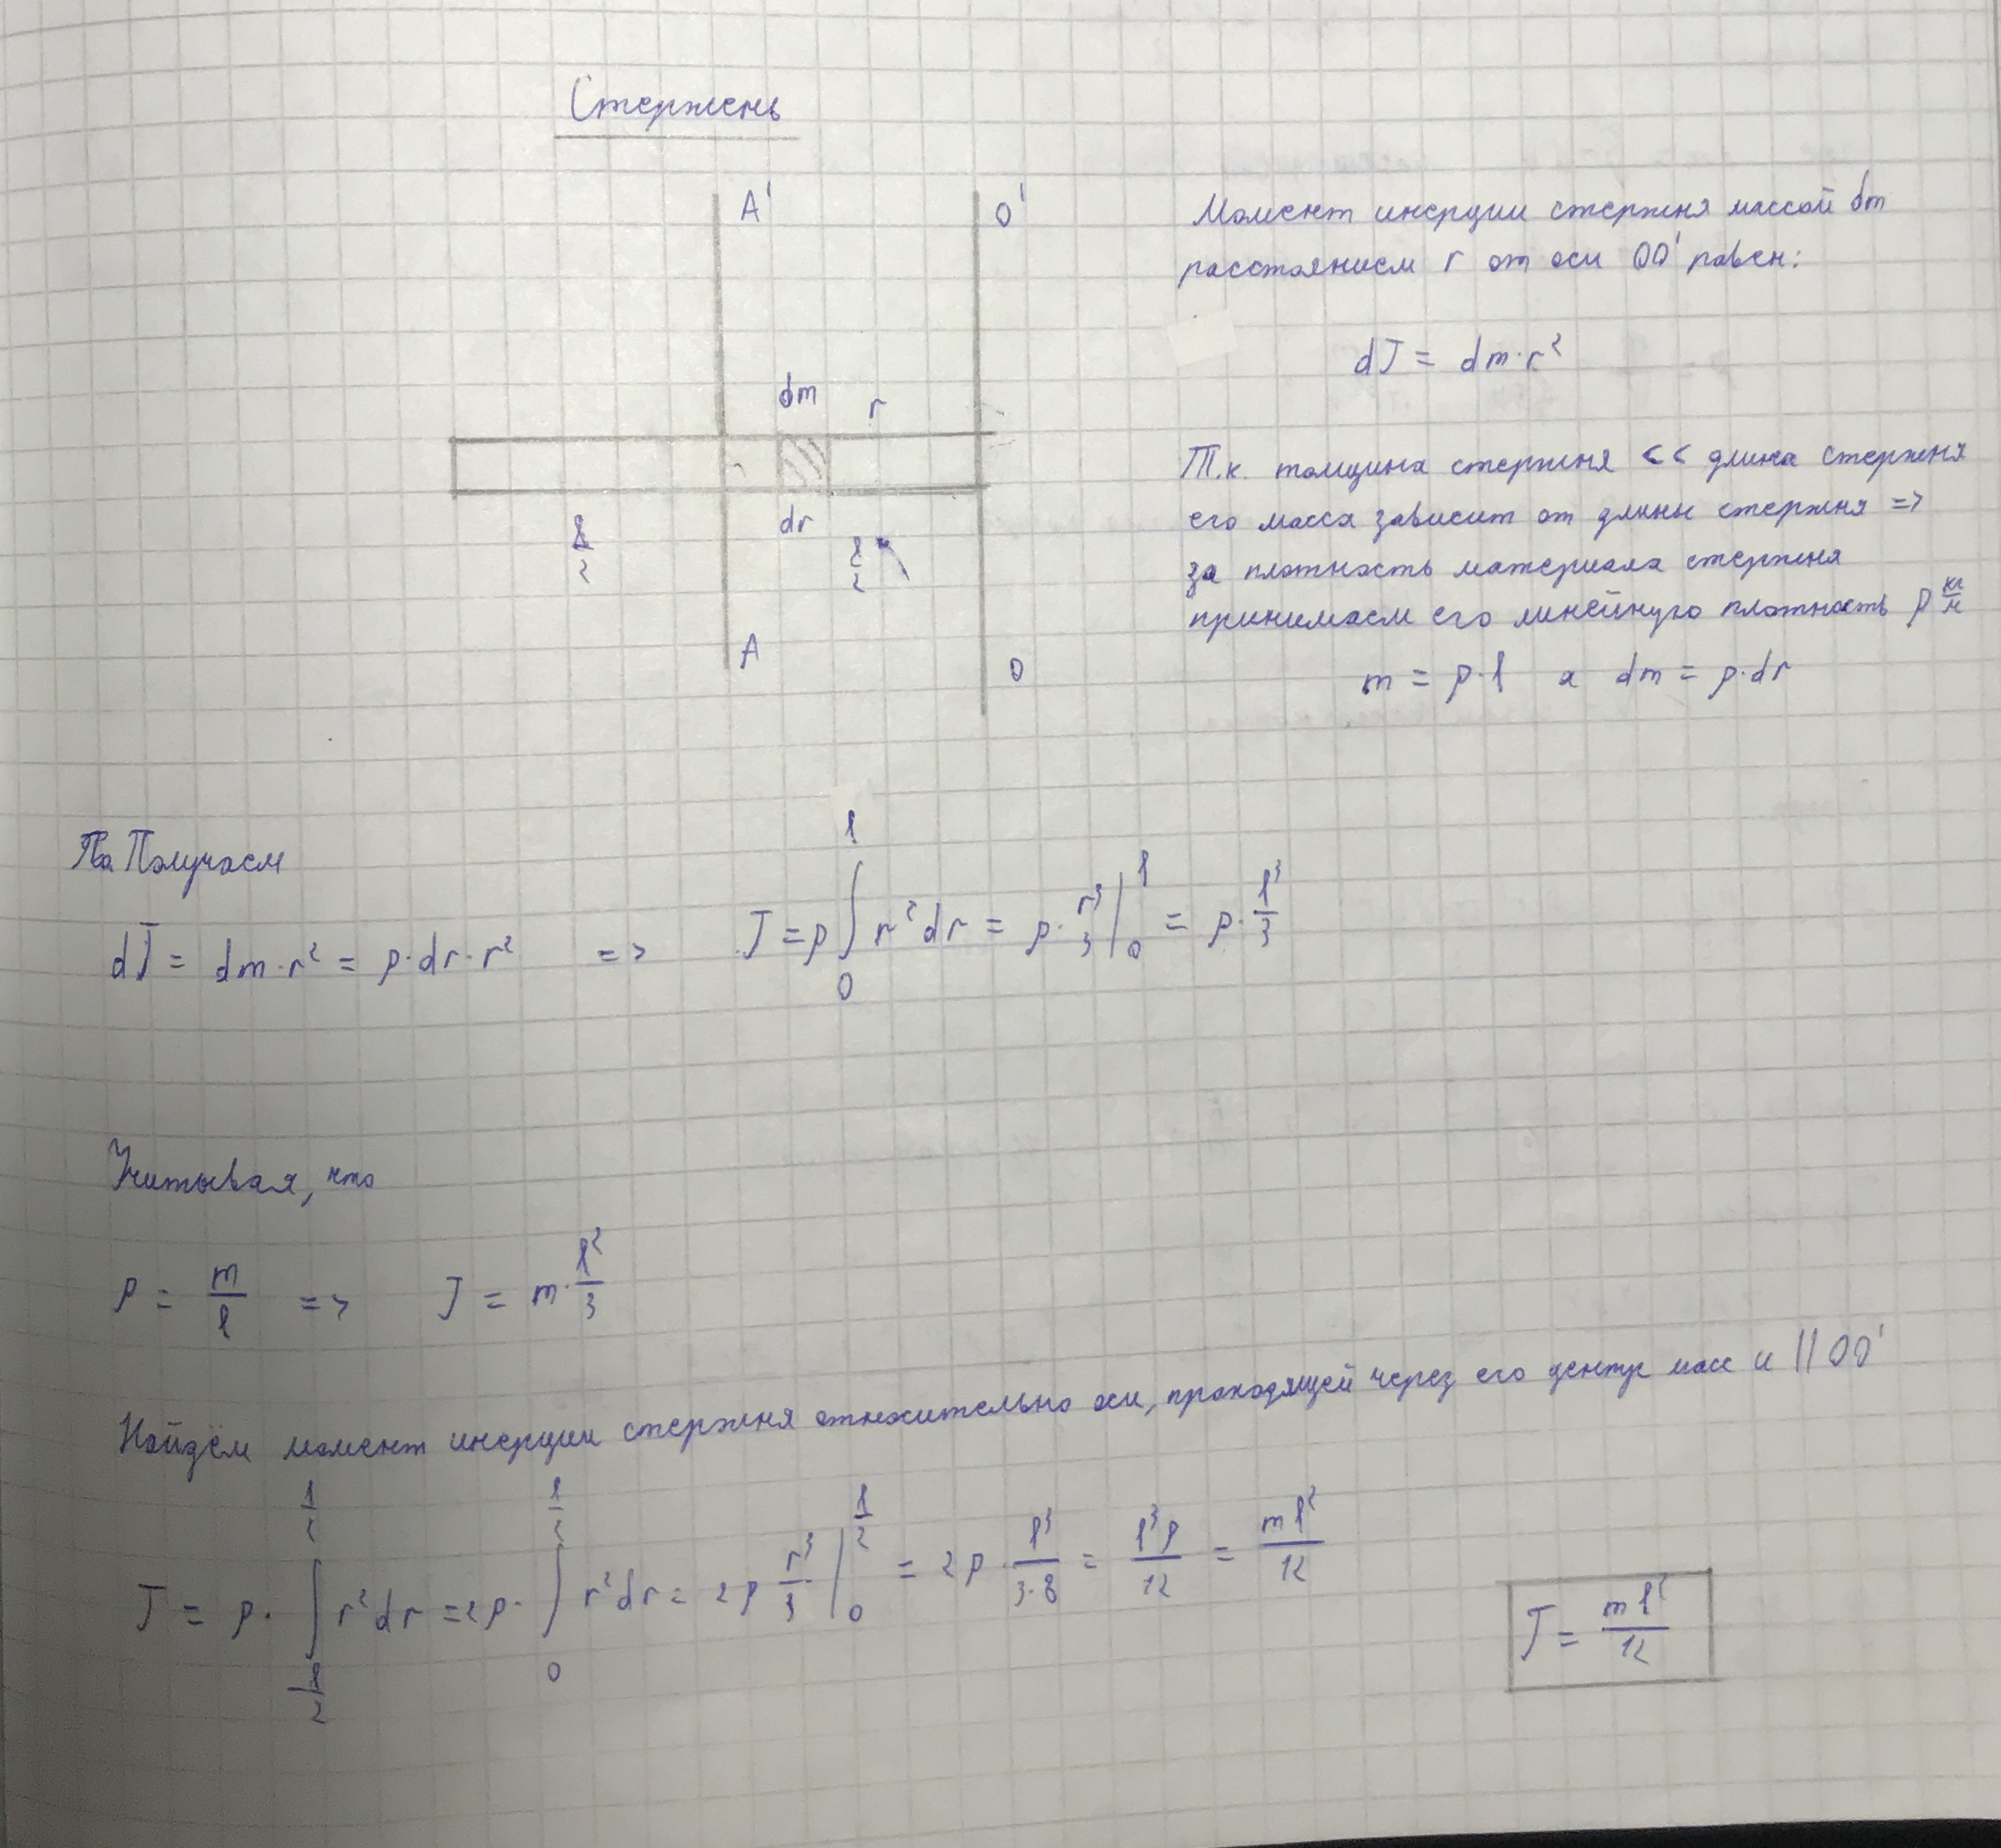 Стержень
A'
O'
dm
r
l/2
dr
l/2
A
O
Момент инерции стержня массой dm
расстоянием r от оси OO' равен:
dJ = dm·r²
Т.к. толщина стержня << длина стержня
его масса зависит от длины стержня =>
за плотность материала стержня
принимаем его линейную плотность ρ кг/м
m = ρ·l а dm = ρ·dr
Получаем
dJ = dm·r² = ρ·dr·r² => J = ρ∫₀ˡ r²dr = ρ·r³/3 |₀ˡ = ρ·l³/3
Учитывая, что
ρ = m/l => J = m·l²/3
Найдём момент инерции стержня относительно оси, проходящей через его центр масс и || OO'
J = ρ·∫_{-l/2}^{l/2} r²dr = 2ρ·∫_0^{l/2} r²dr = 2ρ r³/3 |_0^{l/2} = 2ρ·l³/(3·8) = l³ρ/12 = ml²/12
J = ml²/12